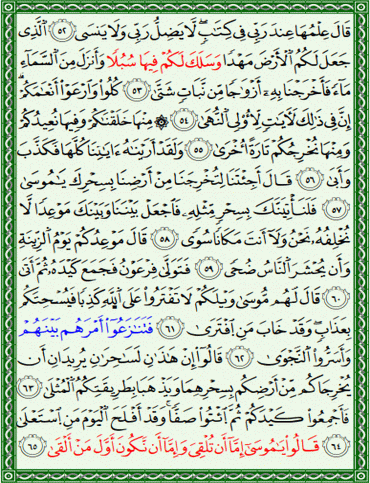 قَالَ عِلْمُهَا عِندَ رَبِّي فِي كِتَٰبٍۖ لَّا يَضِلُّ رَبِّي وَلَا يَنسَى ٥٢ ٱلَّذِي
جَعَلَ لَكُمُ ٱلْأَرْضَ مَهْدًا وَسَلَكَ لَكُمْ فِيهَا سُبُلًا وَأَنزَلَ مِنَ ٱلسَّمَآءِ
مَآءً فَأَخْرَجْنَا بِهِۦٓ أَزْوَٰجًا مِّن نَّبَاتٍ شَتَّىٰ ٥٣ كُلُوا۟ وَٱرْعَوْا۟ أَنْعَٰمَكُمْۗ
إِنَّ فِي ذَٰلِكَ لَءَايَٰتٍ لِّأُو۟لِي ٱلنُّهَىٰ ٥٤ ۞ مِنْهَا خَلَقْنَٰكُمْ وَفِيهَا نُعِيدُكُمْ
وَمِنْهَا نُخْرِجُكُمْ تَارَةً أُخْرَىٰ ٥٥ وَلَقَدْ أَرَيْنَٰهُ ءَايَٰتِنَا كُلَّهَا فَكَذَّبَ
وَأَبَىٰ ٥٦ قَالَ أَجِئْتَنَا لِتُخْرِجَنَا مِنْ أَرْضِنَا بِسِحْرِكَ يَٰمُوسَىٰ
٥٧ فَلَنَأْتِيَنَّكَ بِسِحْرٍ مِّثْلِهِۦ فَٱجْعَلْ بَيْنَنَا وَبَيْنَكَ مَوْعِدًا لَّا
نُخْلِفُهُۥ نَحْنُ وَلَآ أَنتَ مَكَانًا سُوًى ٥٨ قَالَ مَوْعِدُكُمْ يَوْمُ ٱلزِّينَةِ
وَأَن يُحْشَرَ ٱلنَّاسُ ضُحًى ٥٩ فَتَوَلَّىٰ فِرْعَوْنُ فَجَمَعَ كَيْدَهُۥ ثُمَّ أَتَىٰ
٦٠ قَالَ لَهُم مُّوسَىٰ وَيْلَكُمْ لَا تَفْتَرُوا۟ عَلَى ٱللَّهِ كَذِبًا فَيُسْحِتَكُم
بِعَذَابٍۖ وَقَدْ خَابَ مَنِ ٱفْتَرَىٰ ٦١ فَتَنَٰزَعُوٓا۟ أَمْرَهُم بَيْنَهُمْ
وَأَسَرُّوا۟ ٱلنَّجْوَىٰ ٦٢ قَالُوٓا۟ إِنْ هَٰذَٰنِ لَسَٰحِرَٰنِ يُرِيدَانِ أَن
يُخْرِجَاكُم مِّنْ أَرْضِكُم بِسِحْرِهِمَا وَيَذْهَبَا بِطَرِيقَتِكُمُ ٱلْمُثْلَىٰ ٦٣
فَأَجْمِعُوا۟ كَيْدَكُمْ ثُمَّ ٱئْتُوا۟ صَفًّاۚ وَقَدْ أَفْلَحَ ٱلْيَوْمَ مَنِ ٱسْتَعْلَىٰ
٦٤ قَالُوا۟ يَٰمُوسَىٰٓ إِمَّآ أَن تُلْقِيَ وَإِمَّآ أَن نَّكُونَ أَوَّلَ مَنْ أَلْقَىٰ ٦٥